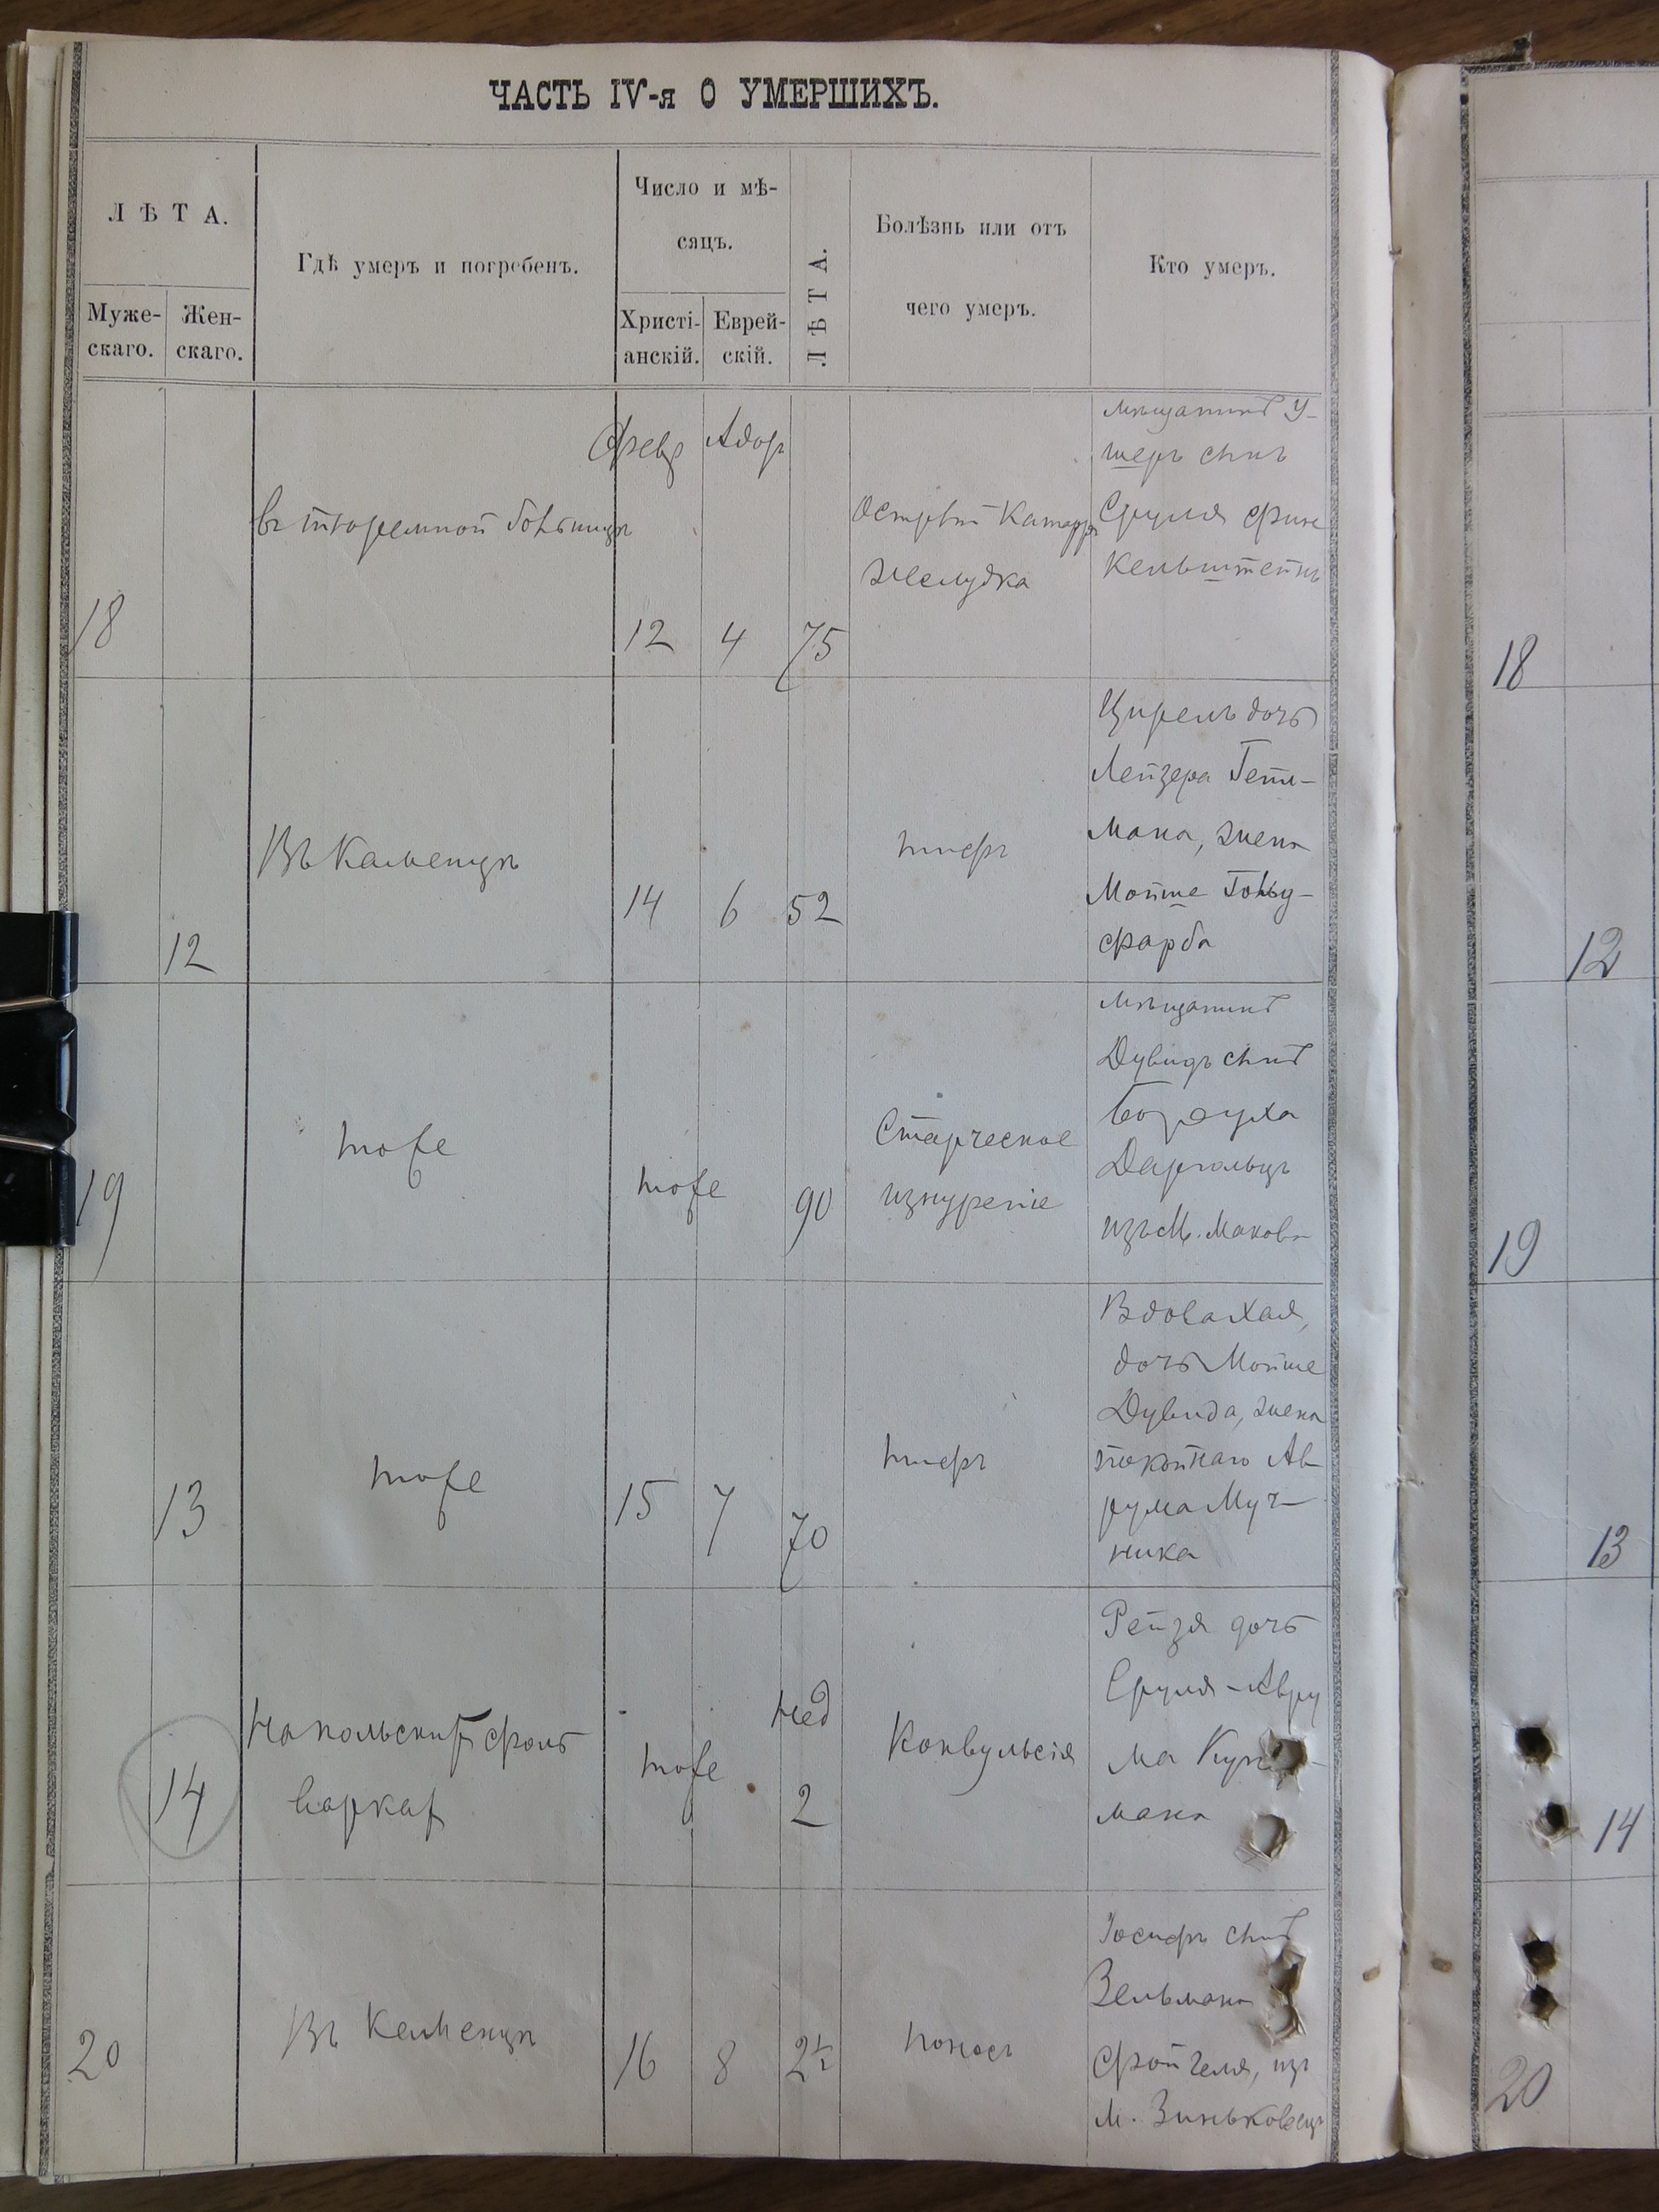 ЧАСТЬ IV-я О УМЕРШИХЪ.
ЛѢТА.
Муже-
скаго.
Жен-
скаго.
Гдѣ умеръ и погребенъ.
Число и мѣ-
сяцъ.
Христі-
анскій.
Еврей-
скій.
ЛѢТА.
Болѣзнь или отъ
чего умеръ.
Кто умеръ.
18
въ тюремной больницѣ
Февр
Адор
12
4
75
Острый Катарръ
желудка
мѣщанинъ У-
шеръ сынъ
Сруля Фин
кельштейнъ
18
12
Въ Каменцѣ
14
6
52
тифъ
Цирель дочь
Лейзера Гет-
мана, жена
Мойше Гольд-
фарба
12
19
тоже
тоже
90
Старческое
изнуреніе
мѣщанинъ
Дувидъ сынъ
Боруха
изъ М. Макова
19
13
тоже
15
7
70
тифъ
Вдова Хая,
дочь Мойше
Дувида, жена
покойнаго Ав-
рума Муч-
ника
13
14
На польскихъ фоль
варках
тоже
нед
2
Конвульсія
Рейзя дочь
Сруля-Авру
ма
мана
14
20
Въ Каменцѣ
16
8
2½
поносъ
Іосифъ сынъ
Зельмана
изъ
м. Зиньковецъ
20